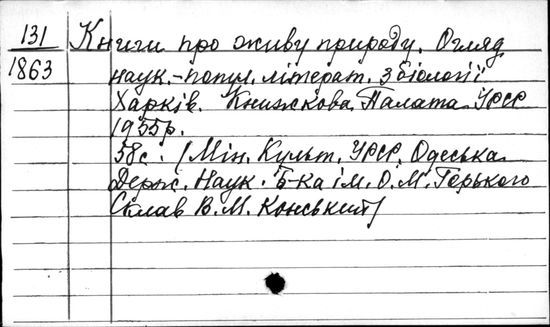 131 Книги про живу природу. Огляд
1863 наук.-попул. літерат. з біології
Харків. Книжкова Палата УРСР
1955р.
58с. (Мін. Культ. УРСР. Одеська
Держ. Наук. Б-ка ім. О.М. Горького
Склав В.М. Конський)